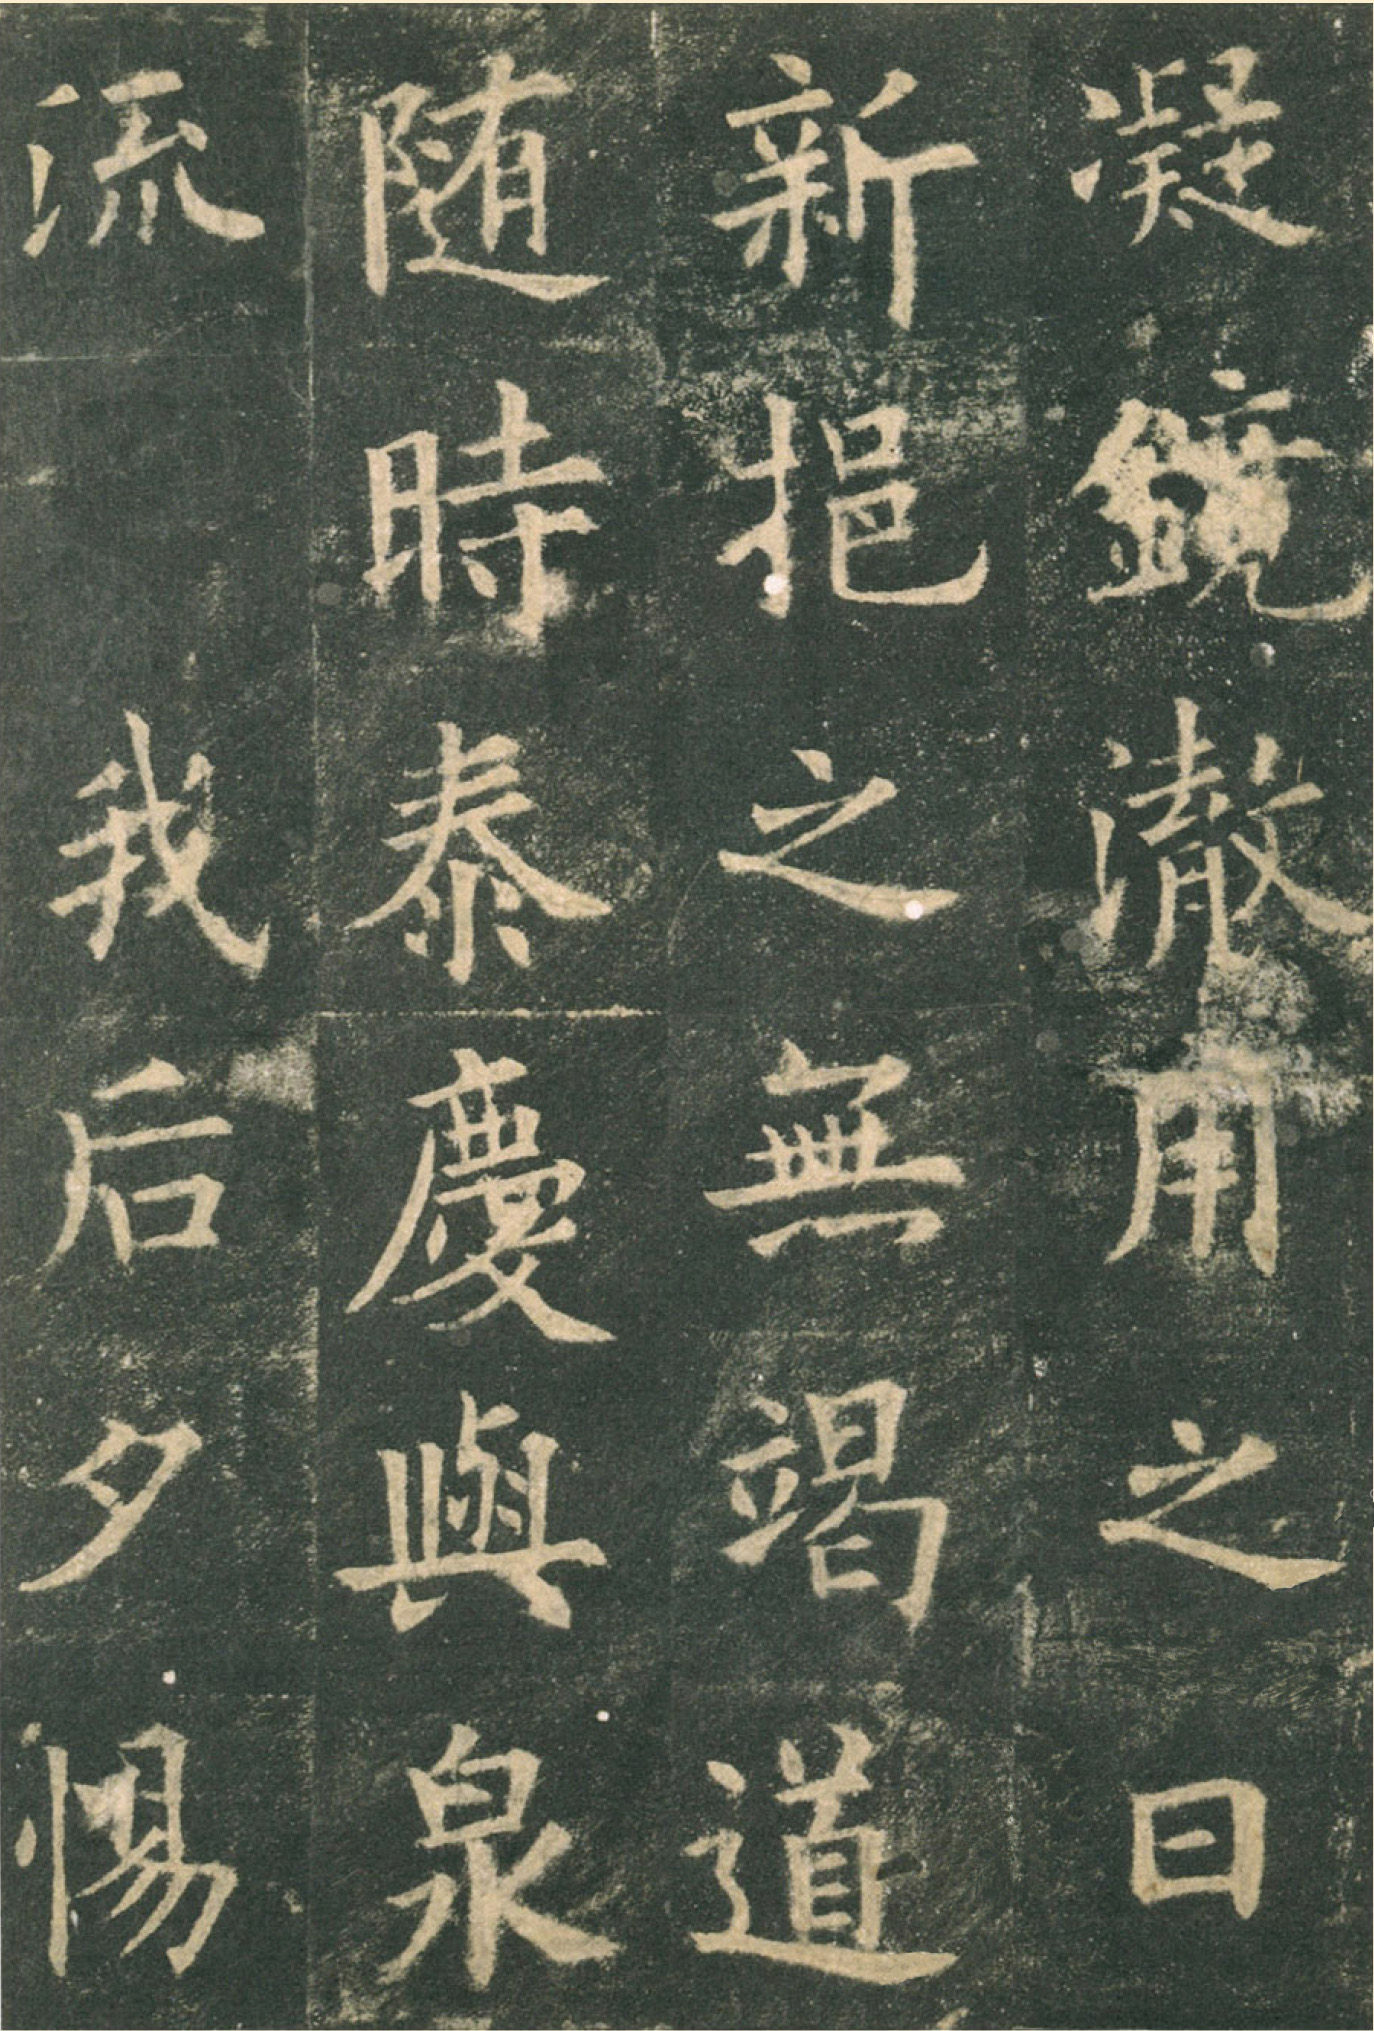 凝鏡澈用之日
新挹之無竭道
随時泰慶與泉
流 我后夕惕